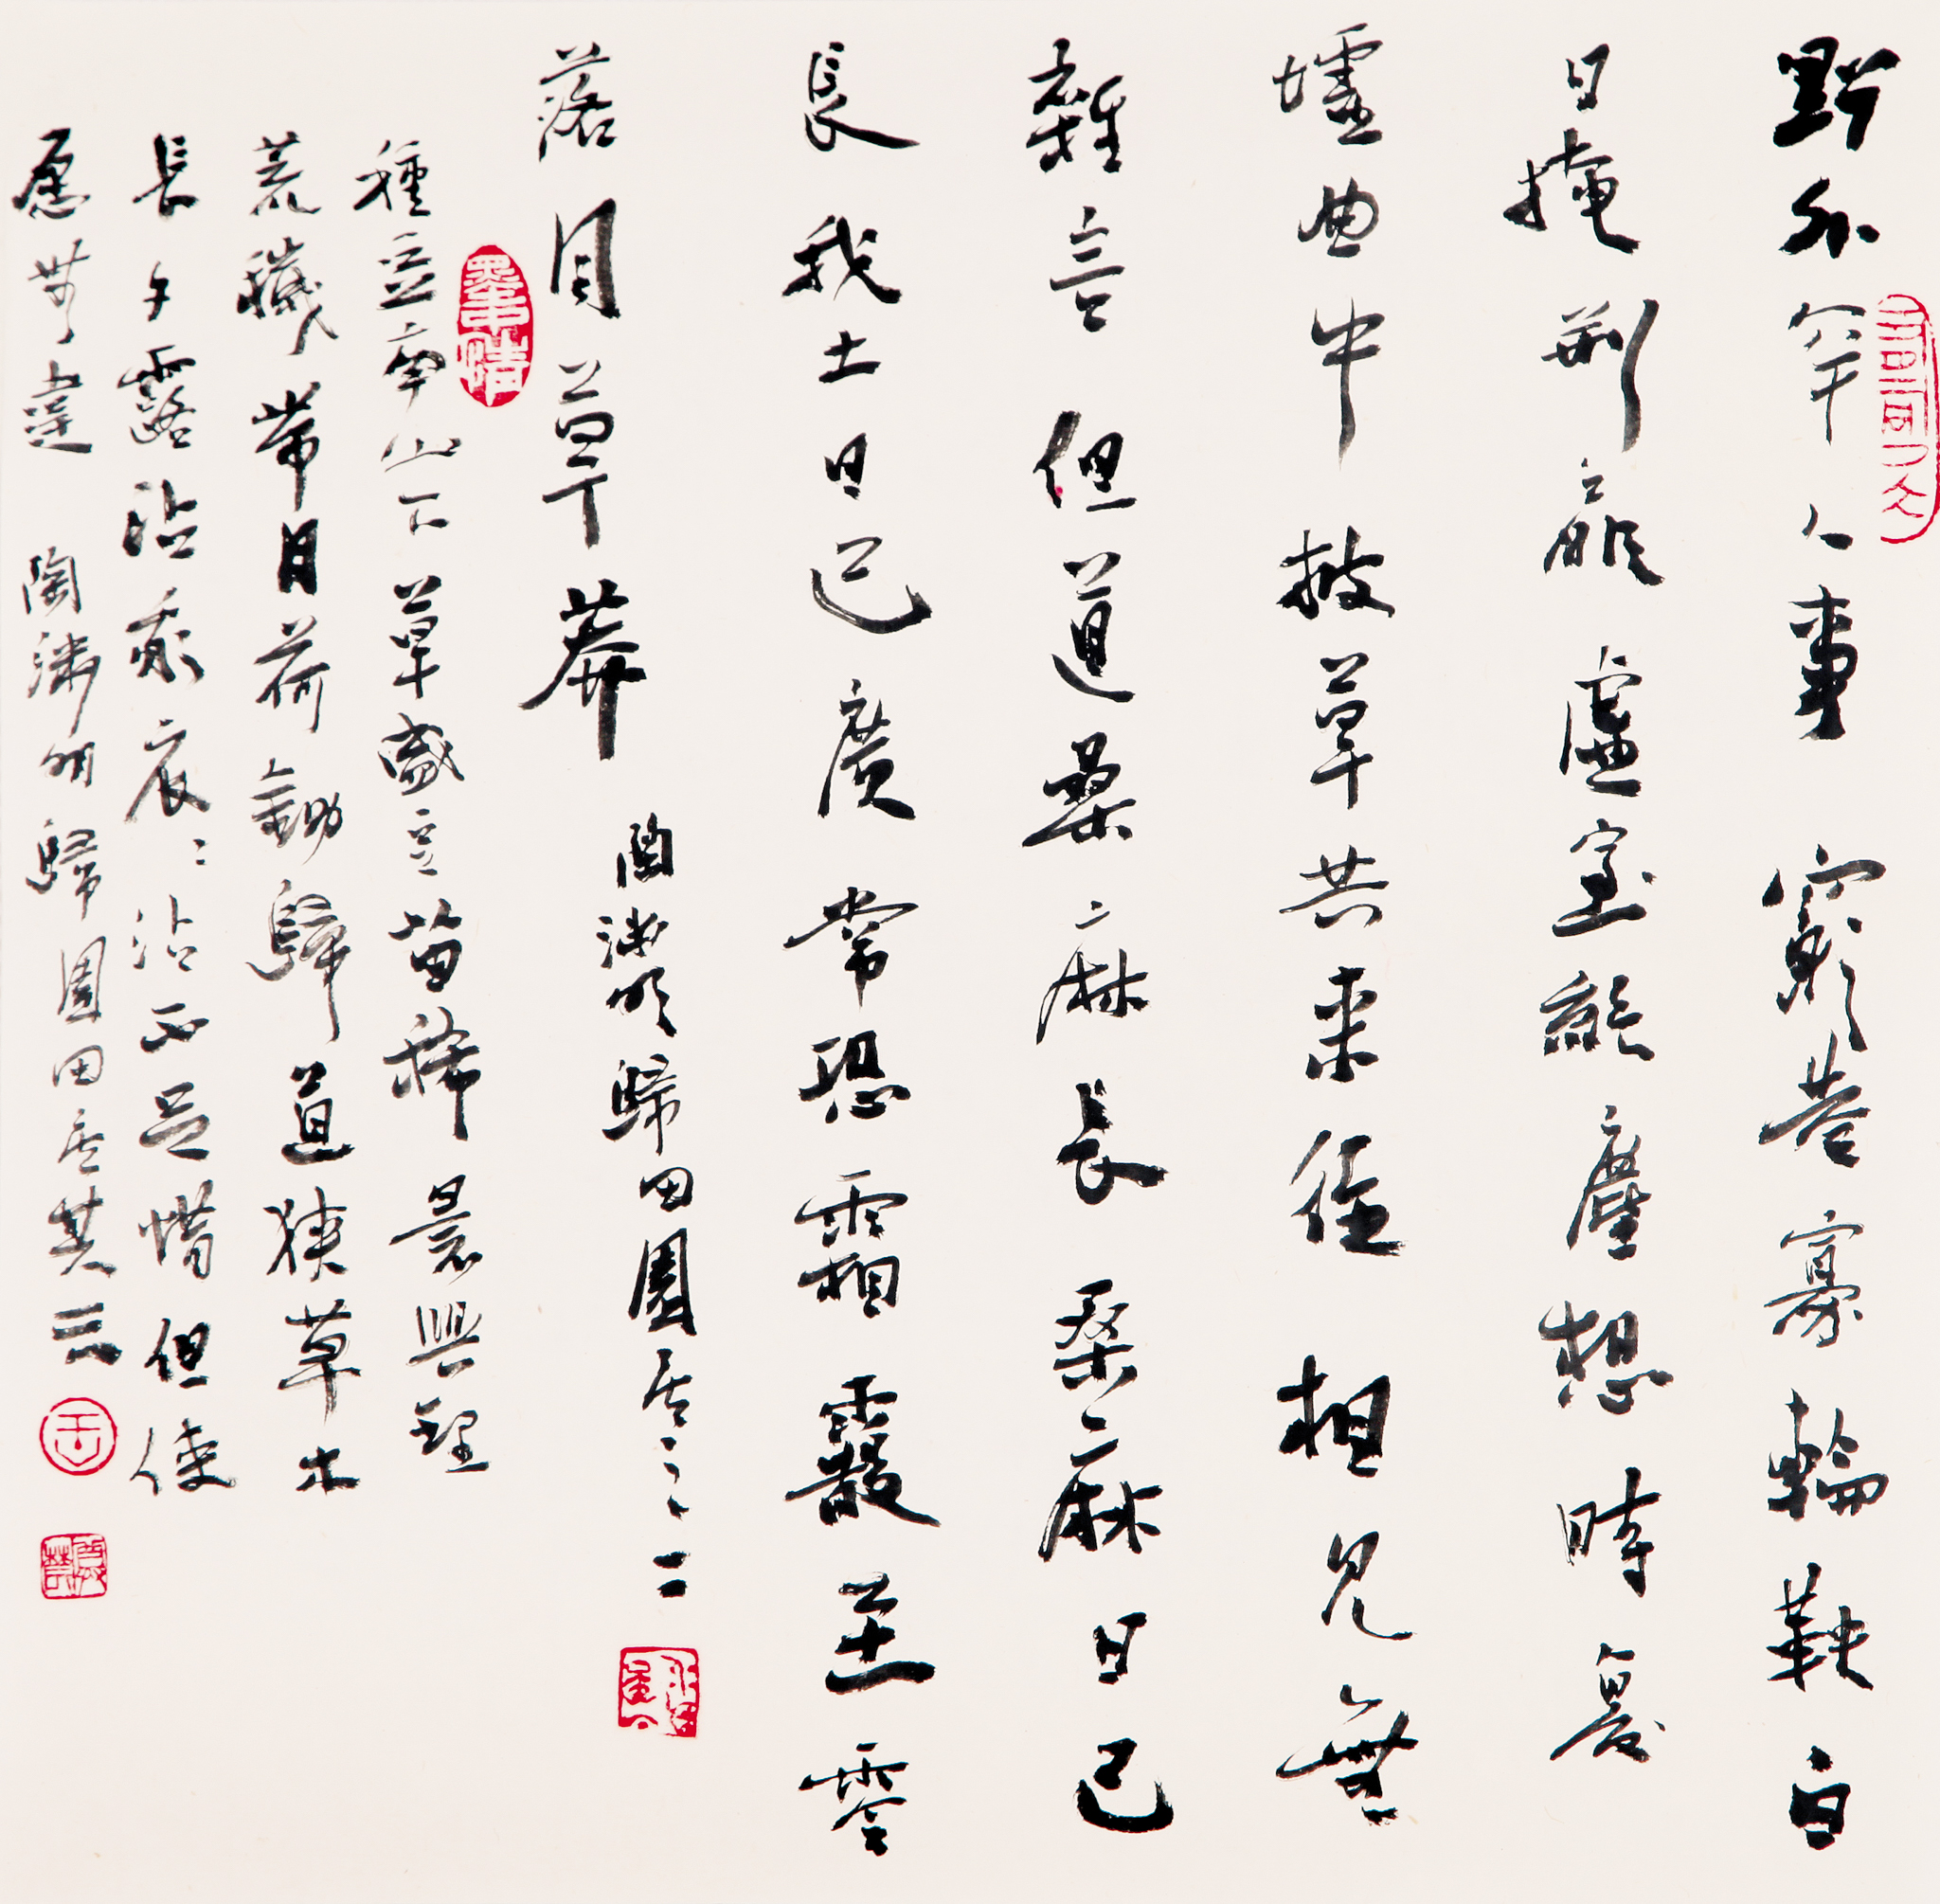 野外罕人事窮巷寡輪鞅白
日掩荊扉虛室絕塵想時復
墟曲中披草共來往相見無
雜言但道桑麻長桑麻日已
長我土日已廣常恐霜霰至零
落同草莽
陶淵明歸田園居之二
種豆南山下草盛豆苗稀晨興理
荒穢帶月荷鋤歸道狹草木
長夕露沾我衣〻沾不足惜但使
愿無違 陶淵明歸園田居其三